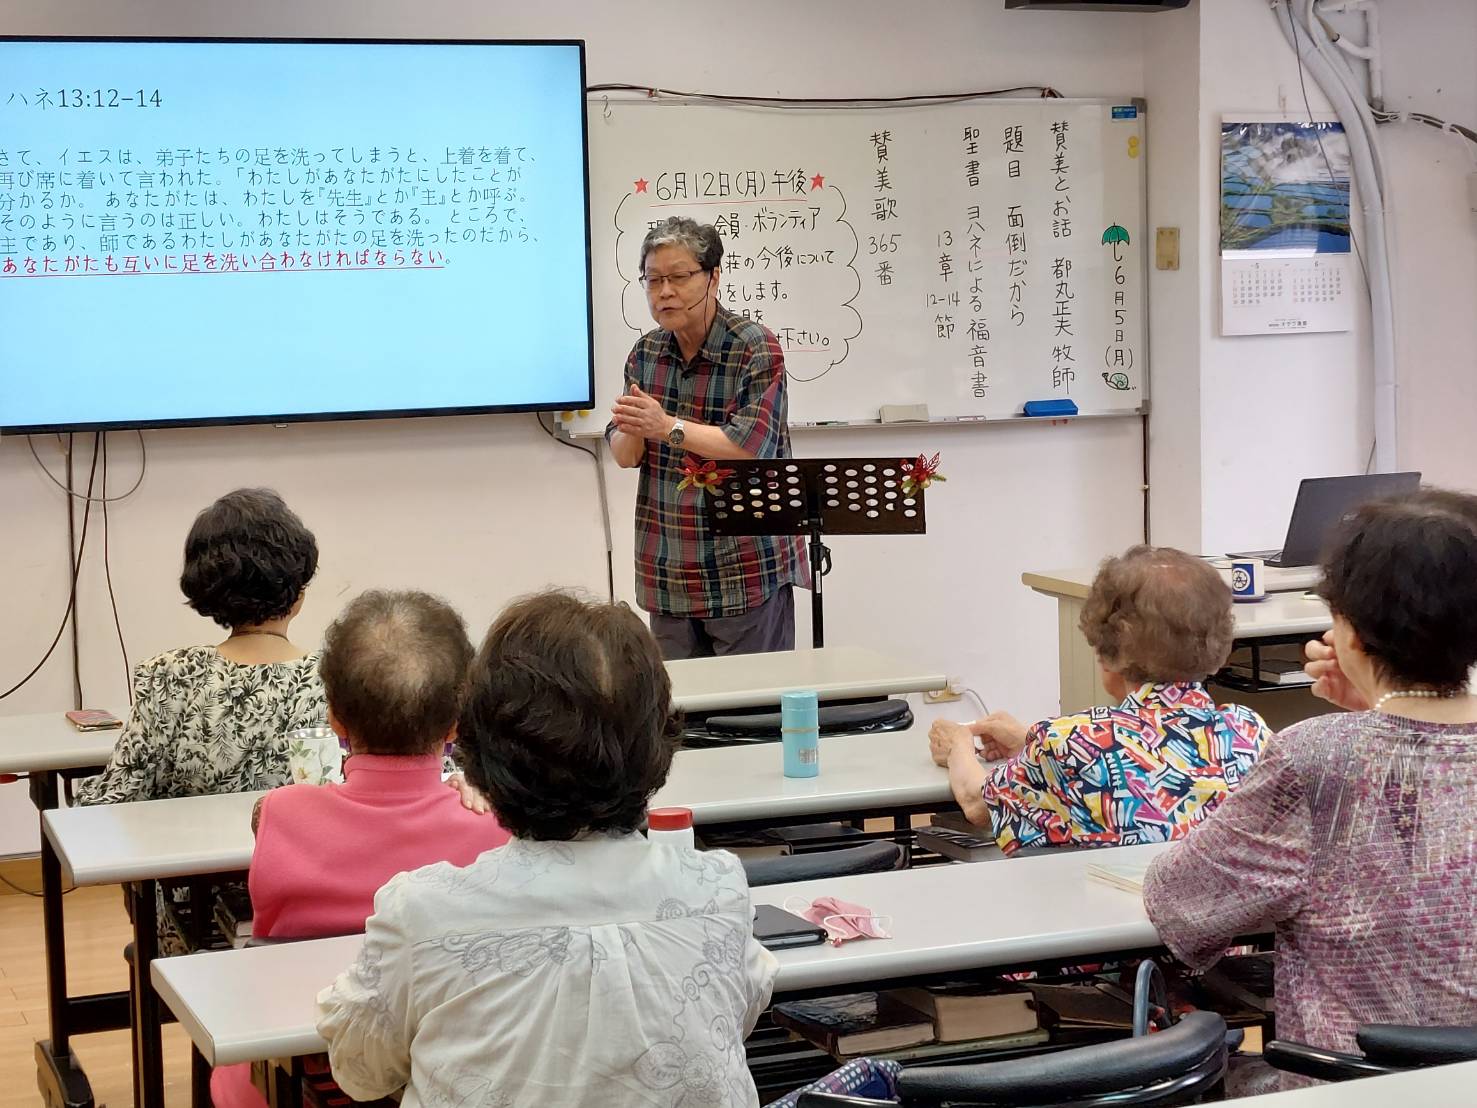 ハネ13:12-14
さて、イエスは、弟子たちの足を洗ってしまうと、上着を着て、
再び席に着いて言われた。「わたしがあなたがたにしたことが
分かるか。 あなたがたは、わたしを『先生』とか『主』とか呼ぶ。
そのように言うのは正しい。わたしはそうである。 ところで、
主であり、師であるわたしがあなたがたの足を洗ったのだから、
あなたがたも互いに足を洗い合わなければならない。
☂し6月5日(月)
賛美とお話 都丸正夫 牧師
題目 面倒だから
聖書 ヨハネによる福音書
13章12-14節
賛美歌365番
★6月12日(月)午後★
会員・ボランティア
荘の今後について
をします。
下さい。
5
6